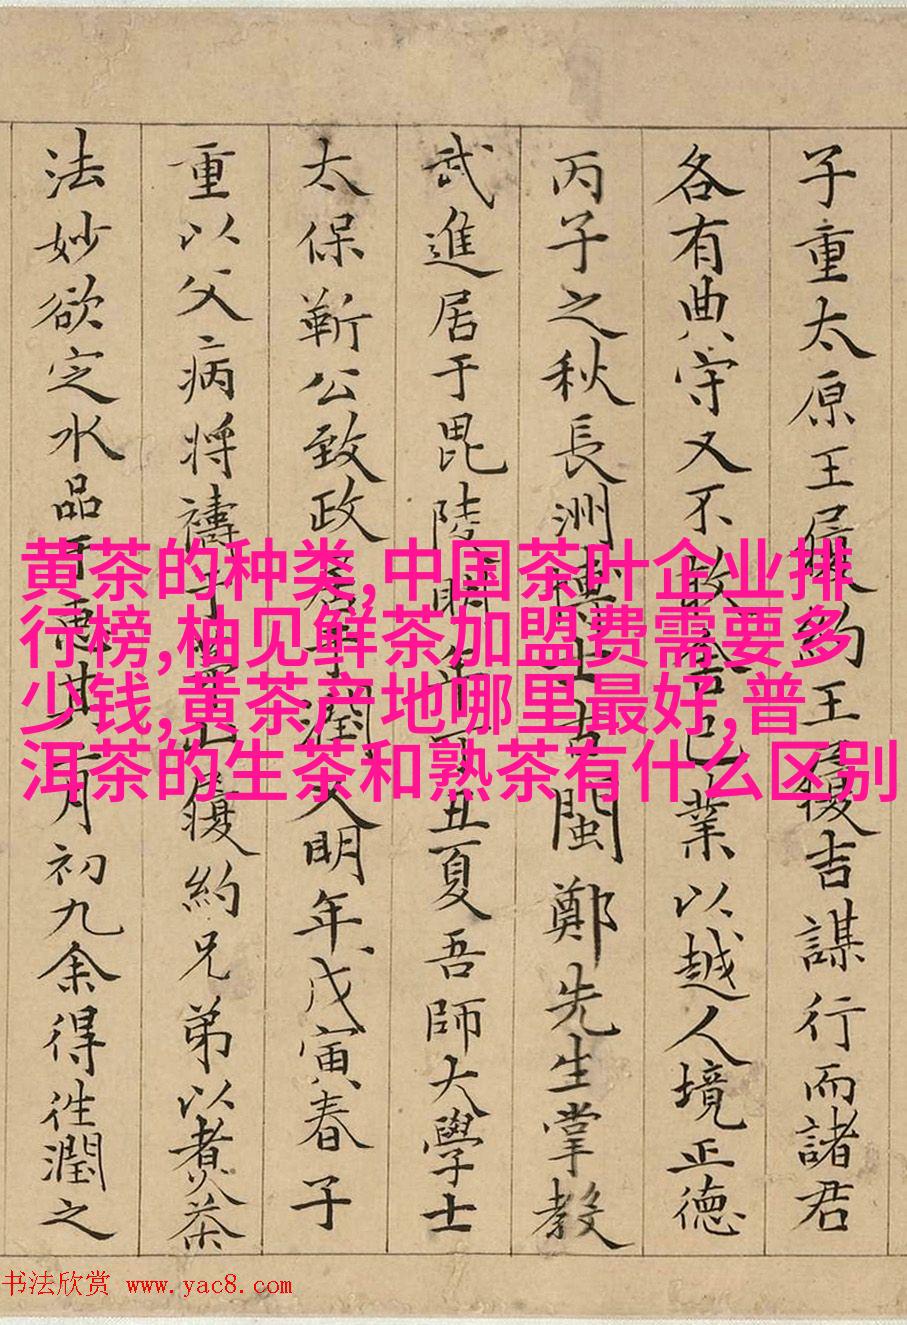 子重太原王履約王履吉謀行而諸君
各有典守又不敢舍己業以越人境正德
丙子之秋長洲博士古閩鄭先生掌教
武進居于毘陵明年丁丑夏吾師大學士
太保靳公致政居于潤又明年戊寅春子
重以父病將禱于茅山履約兄弟以煮茶
法妙欲定水品于惠其月初九余得往潤之
黄茶的种类,中国茶叶企业排
行榜,柚见鲜茶加盟费需要多
少钱,黄茶产地哪里最好,普
洱茶的生茶和熟茶有什么区别
书法欣赏 www.yac8.com